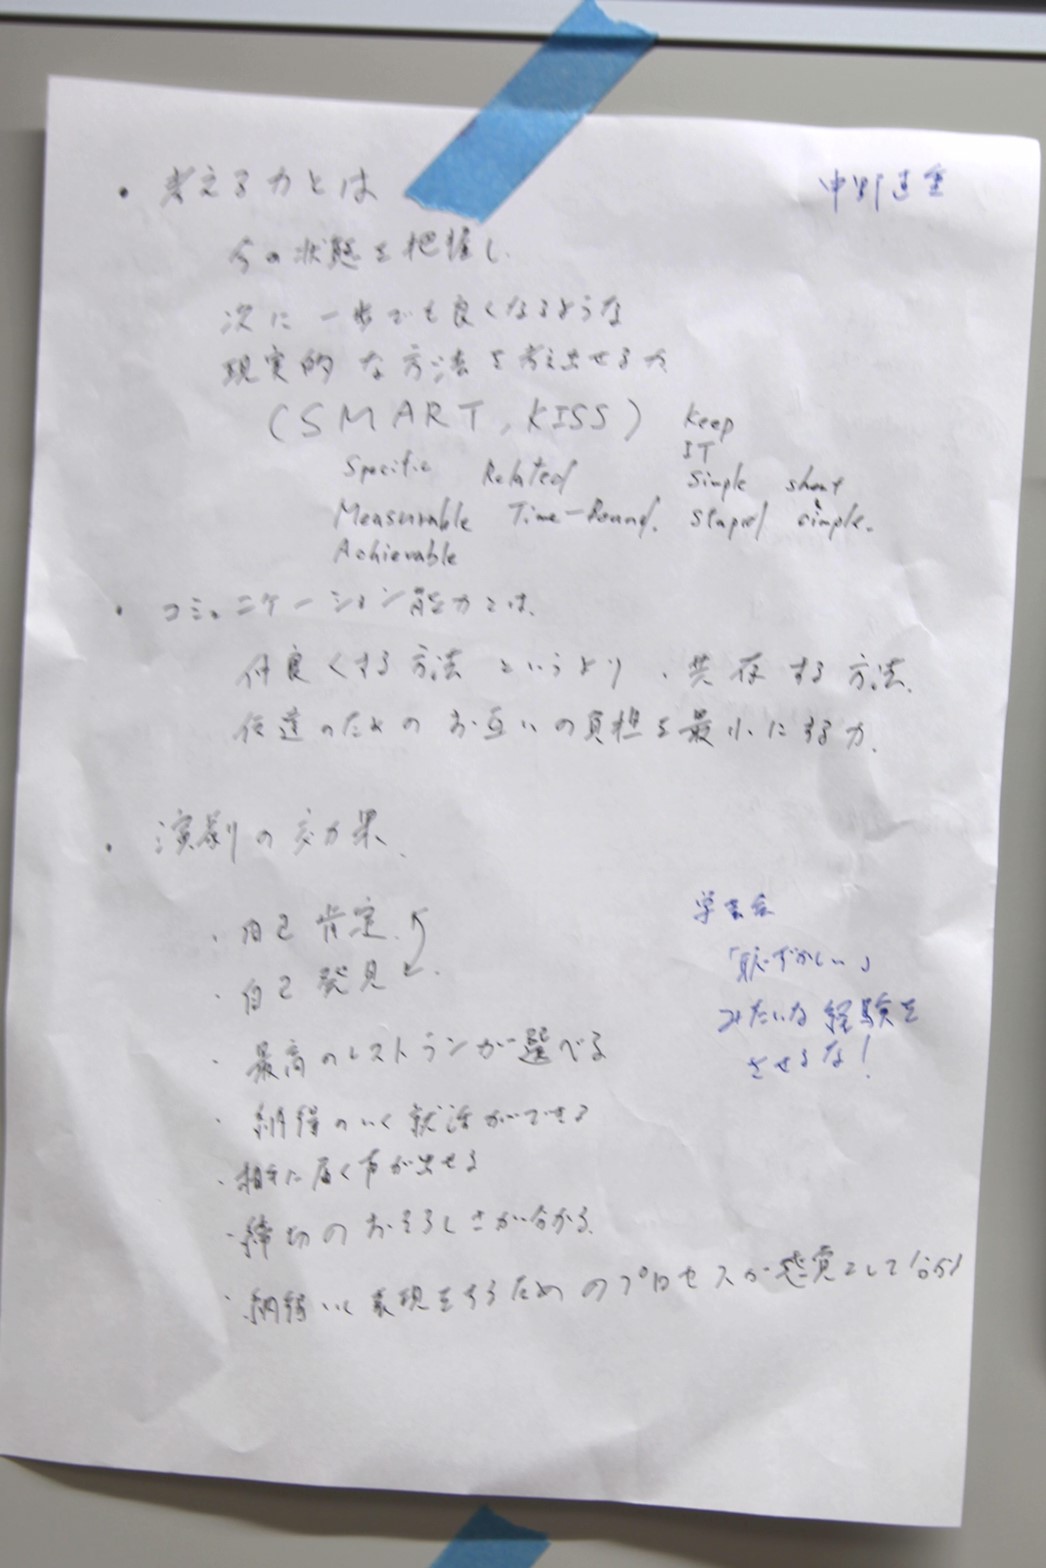 ・考える力とは
今の状態を把握し、
次に一歩でも良くなるような
現実的な方法を考え出せる力
(SMART, KISS)
Specific
Measurable
Achievable
Related
Time-Bound.
Keep
IT
Simple
Stupid
short
simple.
・コミュニケーション能力とは、
仲良くする方法というより、共存する方法、
伝達のためのお互いの負担を最小にする力.
・演劇の効果、
・自己肯定
・自己発見
・最高のレストランが選べる
・納得のいく就活ができる
・相手に届く声が出せる
・締切のおそろしさが分かる
・納得いく表現をするためのプロセスが感覚として
学芸会
「恥ずかしい」
みたいな経験を
させるな!